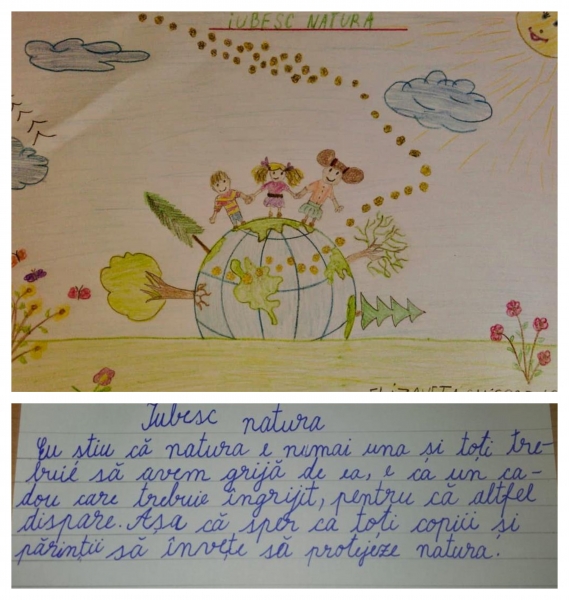 IUBESC NATURA
Iubesc natura
Eu stiu că natura e numai una si toti tre-
buie să avem grijă de ea, e ca un ca-
dou care trebuie îngrijit, pentru că altfel
dispare. Așa că sper ca toti copiii și
părinții să învețe să protejeze natura.